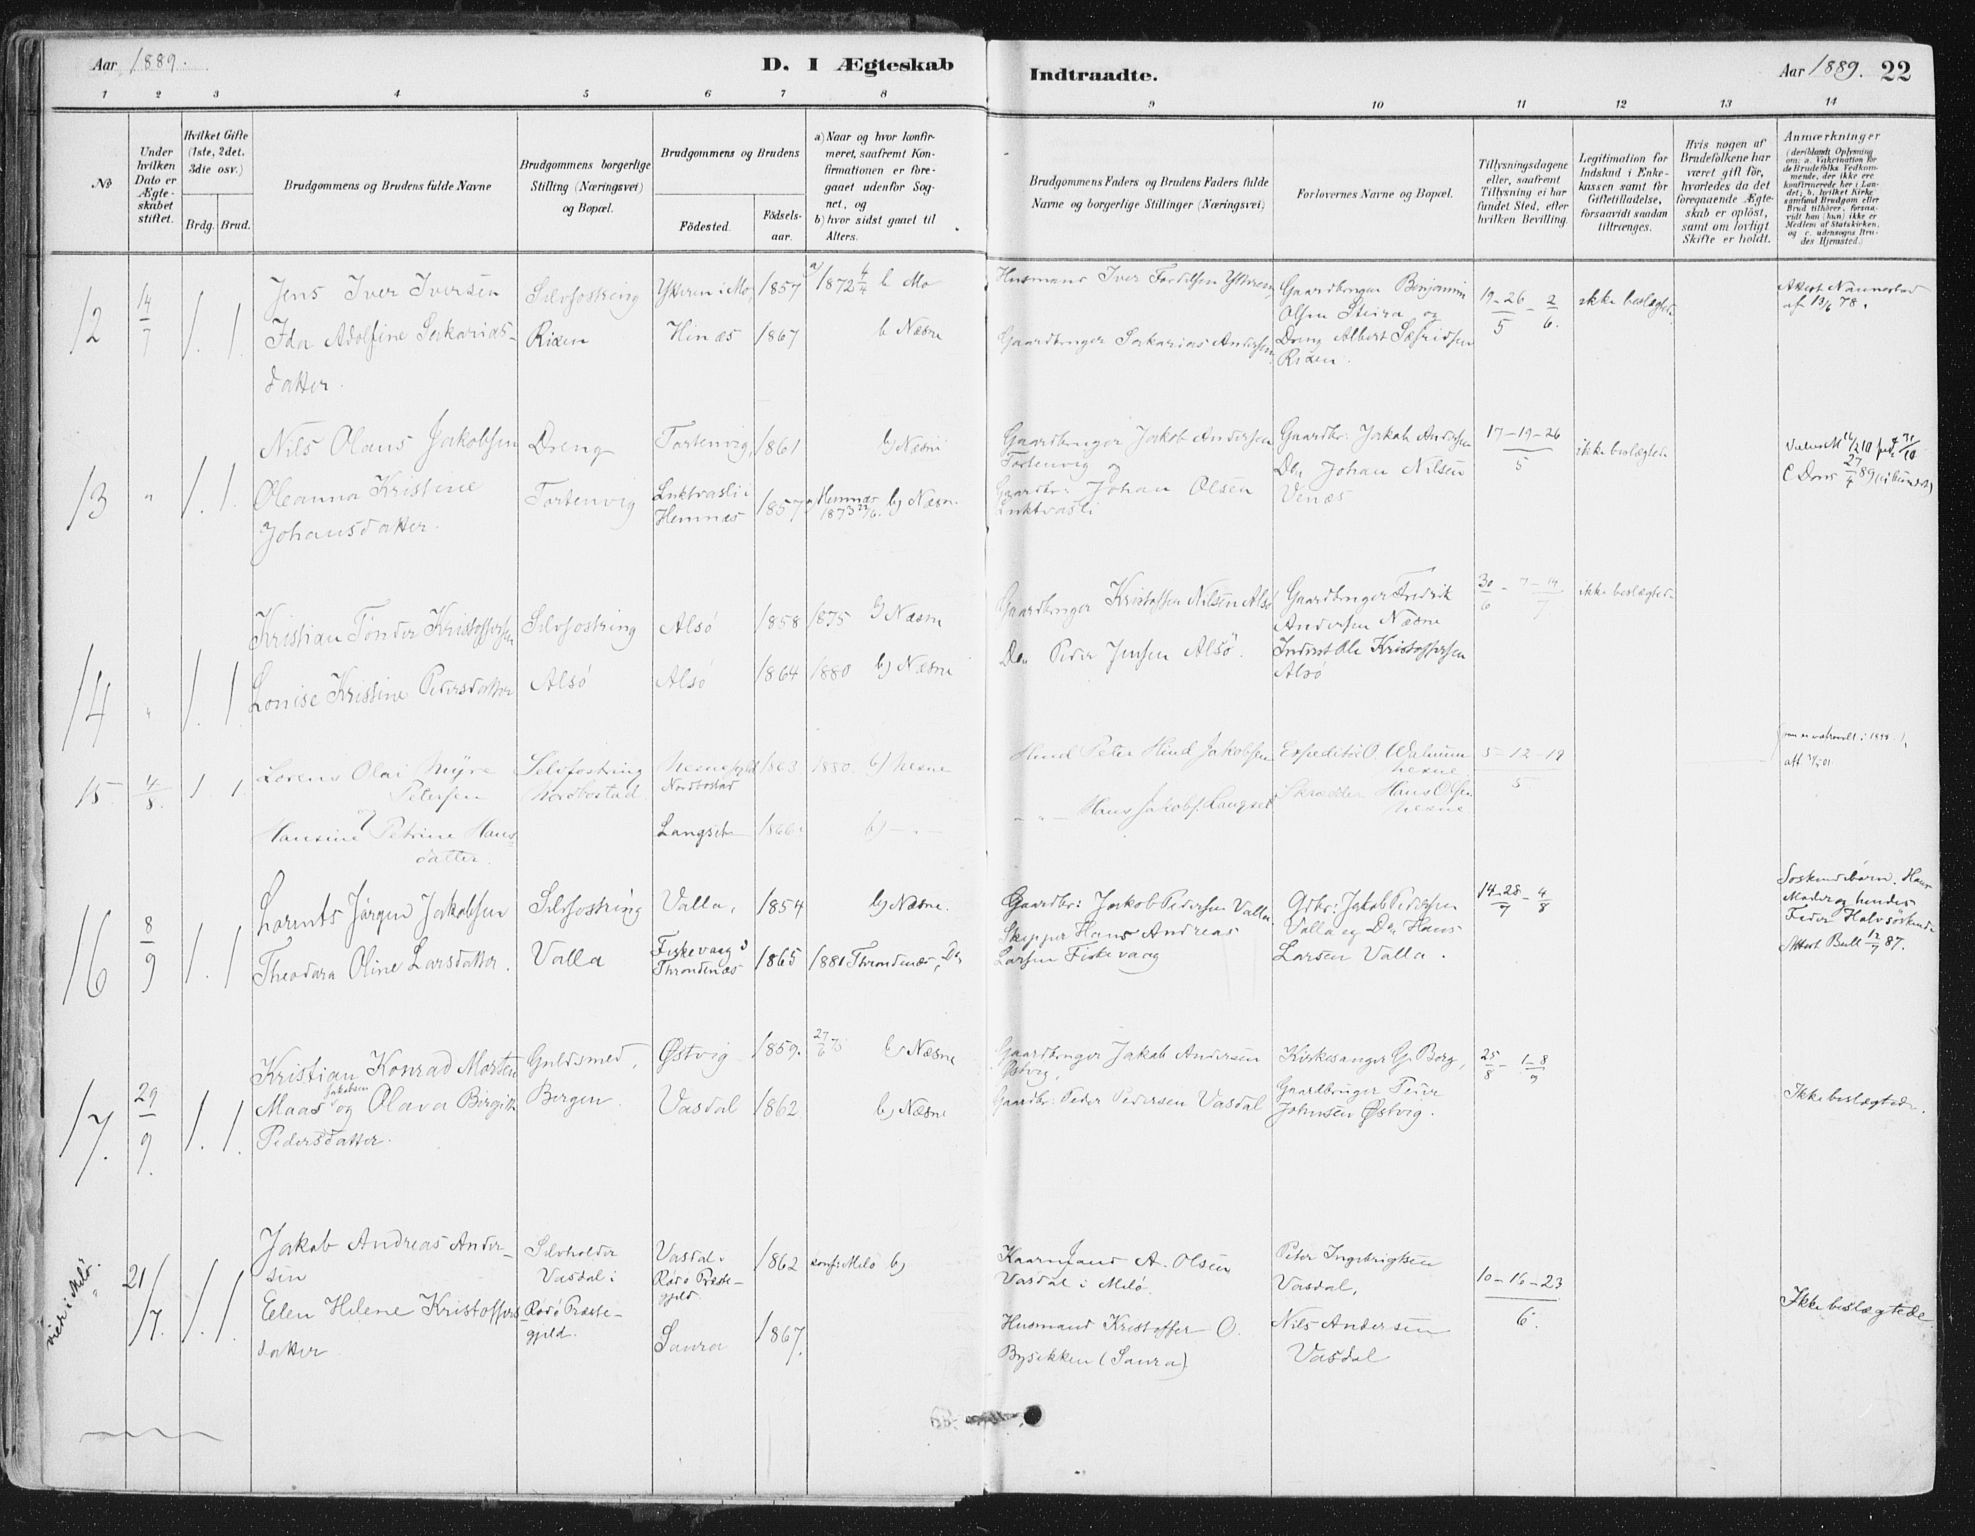 Aar 1889. D. I Ægteskab
Indtraadte. Aar 1889. 22
1 2 3 4 5 6 7 8
9 10 11 12 13 14
No
Under hvilken Dato er Ægteskabet stiftet.
Hvilket Gifte (1ste, 2det, 3die osv.)
Brdg. Brud.
Brudgommens og Brudens fulde Navne
Brudgommens borgerlige Stilling (Næringsvei) og Bopæl.
Brudgommens og Brudens
Fødested.
Fødselsaar.
a) Naar og hvor konfirmeret, saafremt Konfirmationen er foregaaet udenfor Sognet, og
b) hvor sidst gaaet til Alters.
Brudgommens Faders og Brudens Faders fulde Navne og borgerlige Stillinger (Næringsvei)
Forlovernes Navne og Bopæl.
Tillysningsdagene eller, saafremt Tillysning ei har fundet Sted, efter hvilken Bevilling.
Legitimation for Indskud i Enkekassen samt for Giftetilladelse, forsaavidt saadan tiltrænges.
Hvis nogen af Brudefolkene har været gift før, hvorledes da det foregaaende Ægteskab er opløst, samt om lovligt Skifte er holdt.
Anmærkninger
(deriblandt Oplysning om: a. Vakcination for de Brudefolks Vedkommende, der ikke ere konfirmerede her i Landet; b. hvilket Kirkesamfund Brudgom eller Brud tilhører, forsaavidt han (hun) ikke er Medlem af Statskirken, og c. udensogns Brudes Hjemsted.)
12 14/7 1. 1.
Jens Iver Iversen
Ida Adolfine Sakarias-
datter.
Selvfostring
Rixen
Ytteren i Mo 1857 a) 1872 4/4 b Mo
Hinæs 1867 b Næsne
Husmand Iver Ytteren
Gaardbruger Sakarias Andersen
Gaardbruger Benjamin
Olsen Steira og
Dreng Albert Sefridsen
Rixen.
19-26/5 - 2/6.
ikke beslægtede
Attest Nannestad
af 13/6 78.
13 " 1. 1.
Nils Olaus Jakobsen
Oleanna Kristine
Johansdatter.
Dreng
Tortenvig
Tortenvig, 1861 b) Næsne
Luktvasli i
Hemnæs 1857 a) Hemnæs
1873 22/6. b) Næsne
Gaardbruger Jakob Andersen
Tortenvig og
Gaardbr: Johan Olsen
Luktvasli
Gaardbr: Jakob Andersen
Do Johan Nilsen
Venæs
17-19-26
5
ikke beslægtede
14 " 1. 1.
Kristian Tönder Kristoffersen
Lonise Kristine Pedersdatter
Selvfostring
Alsö
Alsö 1858 1875 b) Næsne
Alsö 1864 1880 b) Næsne
Gaardbruger Kristoffer Nilsen Alsö
Do Peder Jensen Alsö.
Gaardbruger Fredrik
Andersen Næsne
Inderst Ole Kristoffersen
Alsö
30/6 - 7-14/7
ikke beslægtede
15 4/8. 1. 1.
Lorens Olai Myre
Petersen
Hansine Petrine Hans-
datter.
Selvfostring
Nordbostad
Nordbostad 1863 1880. b) Nesne
Langset 1866. b) - " -
Peter Hind Jakobsen
" " Hans Jakobs. Langset
Expeditör O. Walnum
Nesne
Skrædder Hans Olsen
Nesne
5-12-19
5
16 8/9 1. 1
Lorents Jörgen Jakobsen
Theodora Oline Larsdatter.
Selvfostring
Valla
Valla, 1854 b) Næsne.
Fiskevaag i
Throndenæs 1865 1881 Throndenæs, Do
Gaardbr: Jakob Pedersen Valla.
Skipper Hans Andreas
Larsen Fiskevaag
Gdbr: Jakob Pedersen
Valla og Do Hans
Larsen Valla.
14-28/7 - 4/8
Söskendebørn. Hans
Moder og hendes
Fader Halvsöskende
Attest Bull 12/7 87.
17. 29/9. 1. 1.
Kristian Konrad Morten
Jakobsen
Maas og Olava Birgitte
Pedersdatter.
Guldsmed,
Bergen.
Østvig 1859. 27/6 75 b) Næsne
Vasdal 1862 b) Næsne
Gaardbruger Jakob Andersen
Østvig,
Gaardbr: Peder Pedersen Vasdal
Kirkesanger G. Borg,
Gaardbruger Peder
Johnsen Østvig.
25/8 - 1-8/9
Ikke beslægtede.
viet i Melö. 21/7. 1. 1.
Jakob Andreas Ander-
sen
Elen Helene Kristoffers
datter
Selvholder
Vasdal i
Rödö Præste-
gjeld.
Vasdal i
Rödö Præste-
gjeld. 1862 konf: Melö b)
Saura 1867.
Kaarmand A. Olsen
Vasdal i Melö.
Husmand Kristoffer O.
Bysekken (Saura)
Peter Ingebrigtsen
Vasdal,
Nils Andersen
Vasdal
10-16-23
6.
Ikke beslægtede.